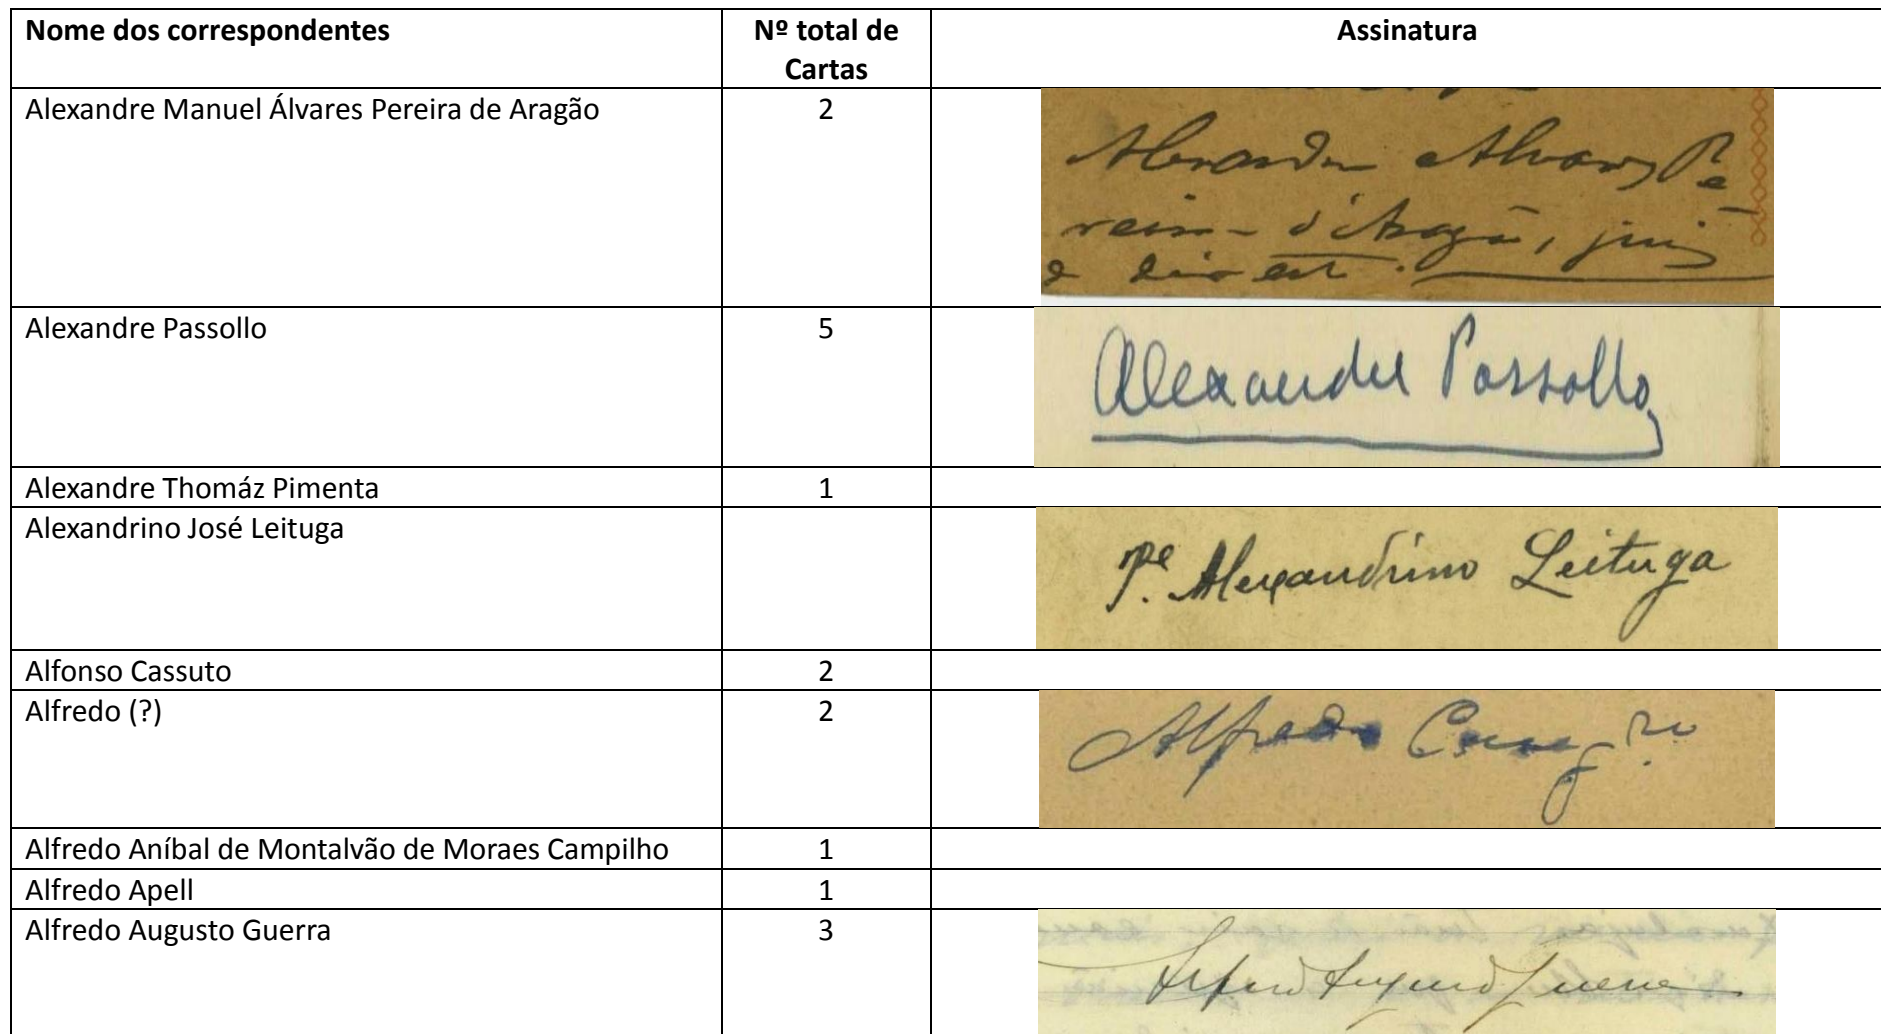 Nome dos correspondentes
Nº total de
Cartas
Assinatura
Alexandre Manuel Álvares Pereira de Aragão
2
Alexandre Alvares Pe
reira d'Aragão, juiz
Alexandre Passollo
5
Alexandre Passollo
Alexandre Thomáz Pimenta
1
Alexandrino José Leituga
Pe. Alexandrino Leituga
Alfonso Cassuto
2
Alfredo (?)
2
Alfredo
Alfredo Aníbal de Montalvão de Moraes Campilho
1
Alfredo Apell
1
Alfredo Augusto Guerra
3
Alfredo Augusto Guerra